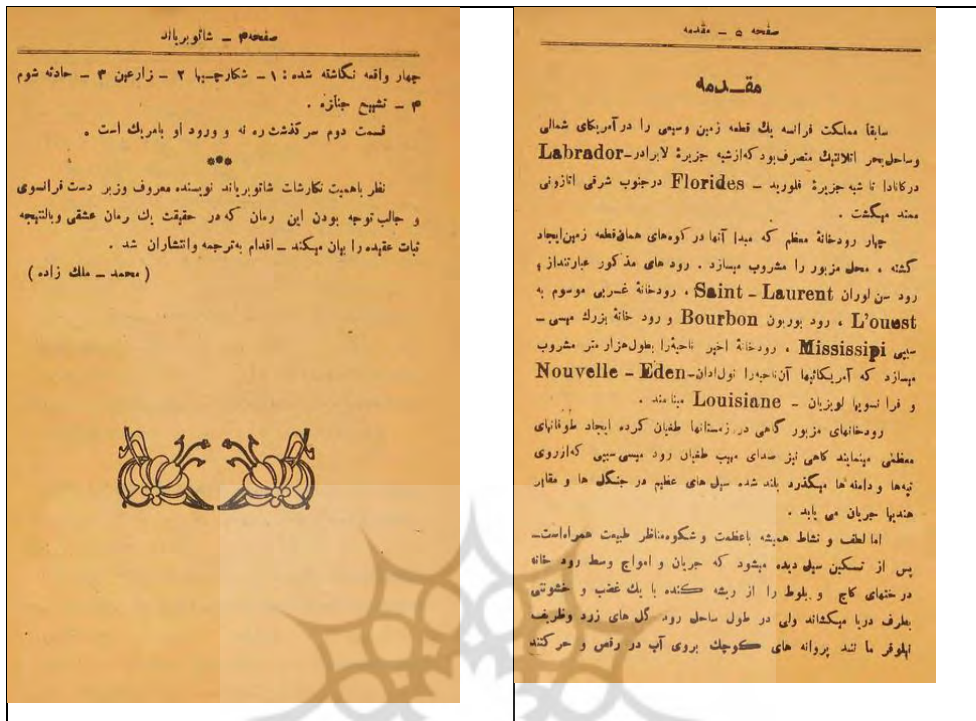 صفحه ۴ ـ شاتوبریاند
چهار واقعه نگاشته شده : ۱ ـ شکارچیها ۲ ـ زارعین ۳ ـ حادثه شوم
۴ ـ تشییع جنازه .
قسمت دوم سرگذشت رنه و ورود او بامریک است .
***
نظر باهمیت نگارشات شاتوبریاند نویسنده معروف وزبر دست فرانسوی
و جالب توجه بودن این رمان که در حقیقت یک رمان عشقی وبالنتیجه
ثبات عقیده را بیان میکند ـ اقدام بترجمه وانتشاران شد .
( محمد ـ ملک زاده )
صفحه ۵ ـ مقدمه
مقـدمه
سابقا مملکت فرانسه یک قطعه زمین وسیعی را درآمریکای شمالی
وساحل بحر اتلانتیک متصرف بود که ازشبه جزیرهٔ لابرادر-Labrador
درکانادا تا شبه جزیرهٔ فلورید ـ Florides درجنوب شرقی اتازونی
ممتد میگشت .
چهار رودخانهٔ معظم که مبدا آنها در کوههای همان قطعه زمین ایجاد
گشته ، محل مزبور را مشروب میسازد . رود های مذکور عبارتنداز ،
رود سن لوران Saint - Laurent ، رودخانهٔ غـربی موسوم به
L'ouest ، رود بوربون Bourbon و رود خانهٔ بزرگ میسی ـ
سیپی Mississipi ، رودخانهٔ اخیر ناحیه‌را بطول هزار متر مشروب
میسازد که آمریکائیها آن ناحیه‌را نول ادان-Nouvelle - Eden
و فرا نسویها لویزیان ـ Louisiane مینا مند .
رودخانهای مزبور گاهی در زمستانها طغیان کرده ایجاد طوفانهای
معظمی مینمایند گاهی نیز صدای مهیب طغیان رود میسی سیپی که ازروی
تپه‌ها و دامنه ها میگذرد بلند شده سیل های عظیم در جنگل ها و مقابر
هندیها جریان می یابد .
اما لطف و نشاط همیشه باعظمت و شکوه مناظر طبیعت همراه‌است-
پس از تسکین سیل دیده میشود که جریان و امواج وسط رود خانه
درختهای کاج و بلوط را از ریشه کنده با یک غضب و خشونتی
بطرف دریا میکشاند ولی در طول ساحل رود گل های زرد وظریف
نیلوفر ما نند پروانه های کوچک بروی آب در رقص و حر کتند